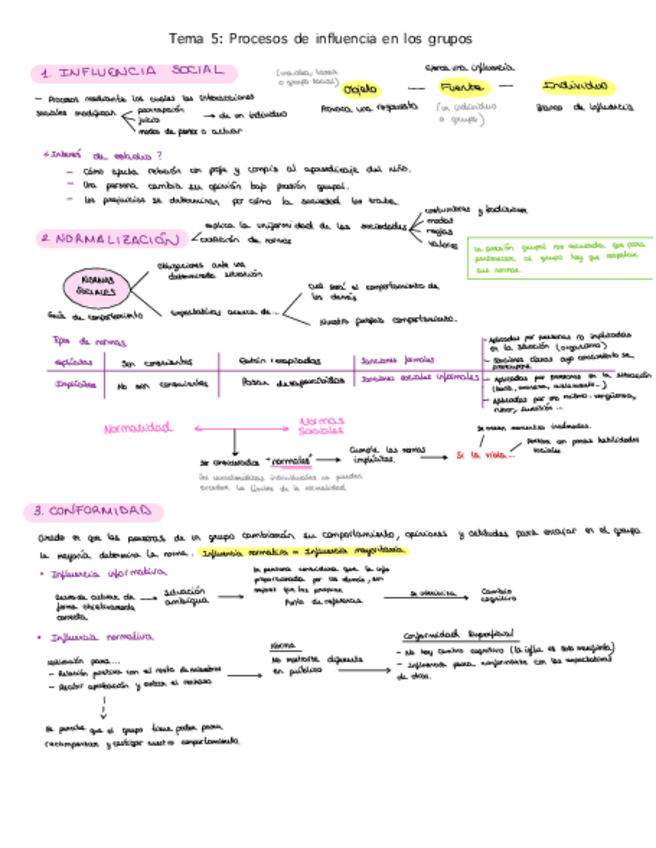 Tema 5: Procesos de influencia en los grupos
1. INFLUENCIA SOCIAL
Ejerce una influencia
Objeto — Fuente — Individuo
Provoca una respuesta
(un individuo
o grupo)
Blanco de influencia
- Procesos mediante los cuales las interacciones
sociales modifican
percepción
juicio
modos de pensar o actuar
→ de un individuo
¿Interés de estudio?
- Cómo afecta relación con profe y compis al aprendizaje del niño.
- Una persona cambia su opinión bajo presión grupal.
- Los prejuicios se determinan por cómo la sociedad les trata.
2. NORMALIZACIÓN
explica la uniformidad de las sociedades
creación de normas
costumbres y tradiciones
modas
reglas
valores
La presión grupal nos recuerda que para
pertenecer al grupo hay que respetar
sus normas.
NORMAS
SOCIALES
Obligaciones ante una
determinada situación
Guía de comportamiento
Expectativas acerca de...
Cuál será el comportamiento de
los demás
Nuestro propio comportamiento.
Tipos de normas
Explícitas
Son conscientes
Están recopiladas
Sanciones formales
- Aplicadas por personas no implicadas
en la situación (organismo)
Implícitas
No son conscientes
Pasan desapercibidas
Sanciones sociales informales
- Aplicadas por personas en la situación
Normalidad
Normas
Sociales
Ser considerados "normales"
Cumplir las normas
implícitas.
Si la viola...
Las características individuales no pueden
exceder los límites de la normalidad
Persona con pocas habilidades
sociales
3. CONFORMIDAD
Grado en que las personas de un grupo cambiarán su comportamiento, opiniones y actitudes para encajar en el grupo.
La mayoría determina la norma. Influencia normativa = Influencia mayoritaria
• Influencia informativa
forma objetivamente
correcta
situación
ambigua
La persona considera que la info
proporcionada por los demás, son
mejores que las propias
Punto de referencia
Cambio
cognitivo
• Influencia normativa
para...
- Relación positiva con el resto de miembros
- Recibir aprobación y evitar el rechazo
Norma
No mostrarse diferente
en público
Conformidad Superficial
- No hay cambio cognitivo
- Influencia para conformarse con las expectativas
de otros.
Se percibe que el grupo tiene poder para
recompensar y castigar nuestro comportamiento.